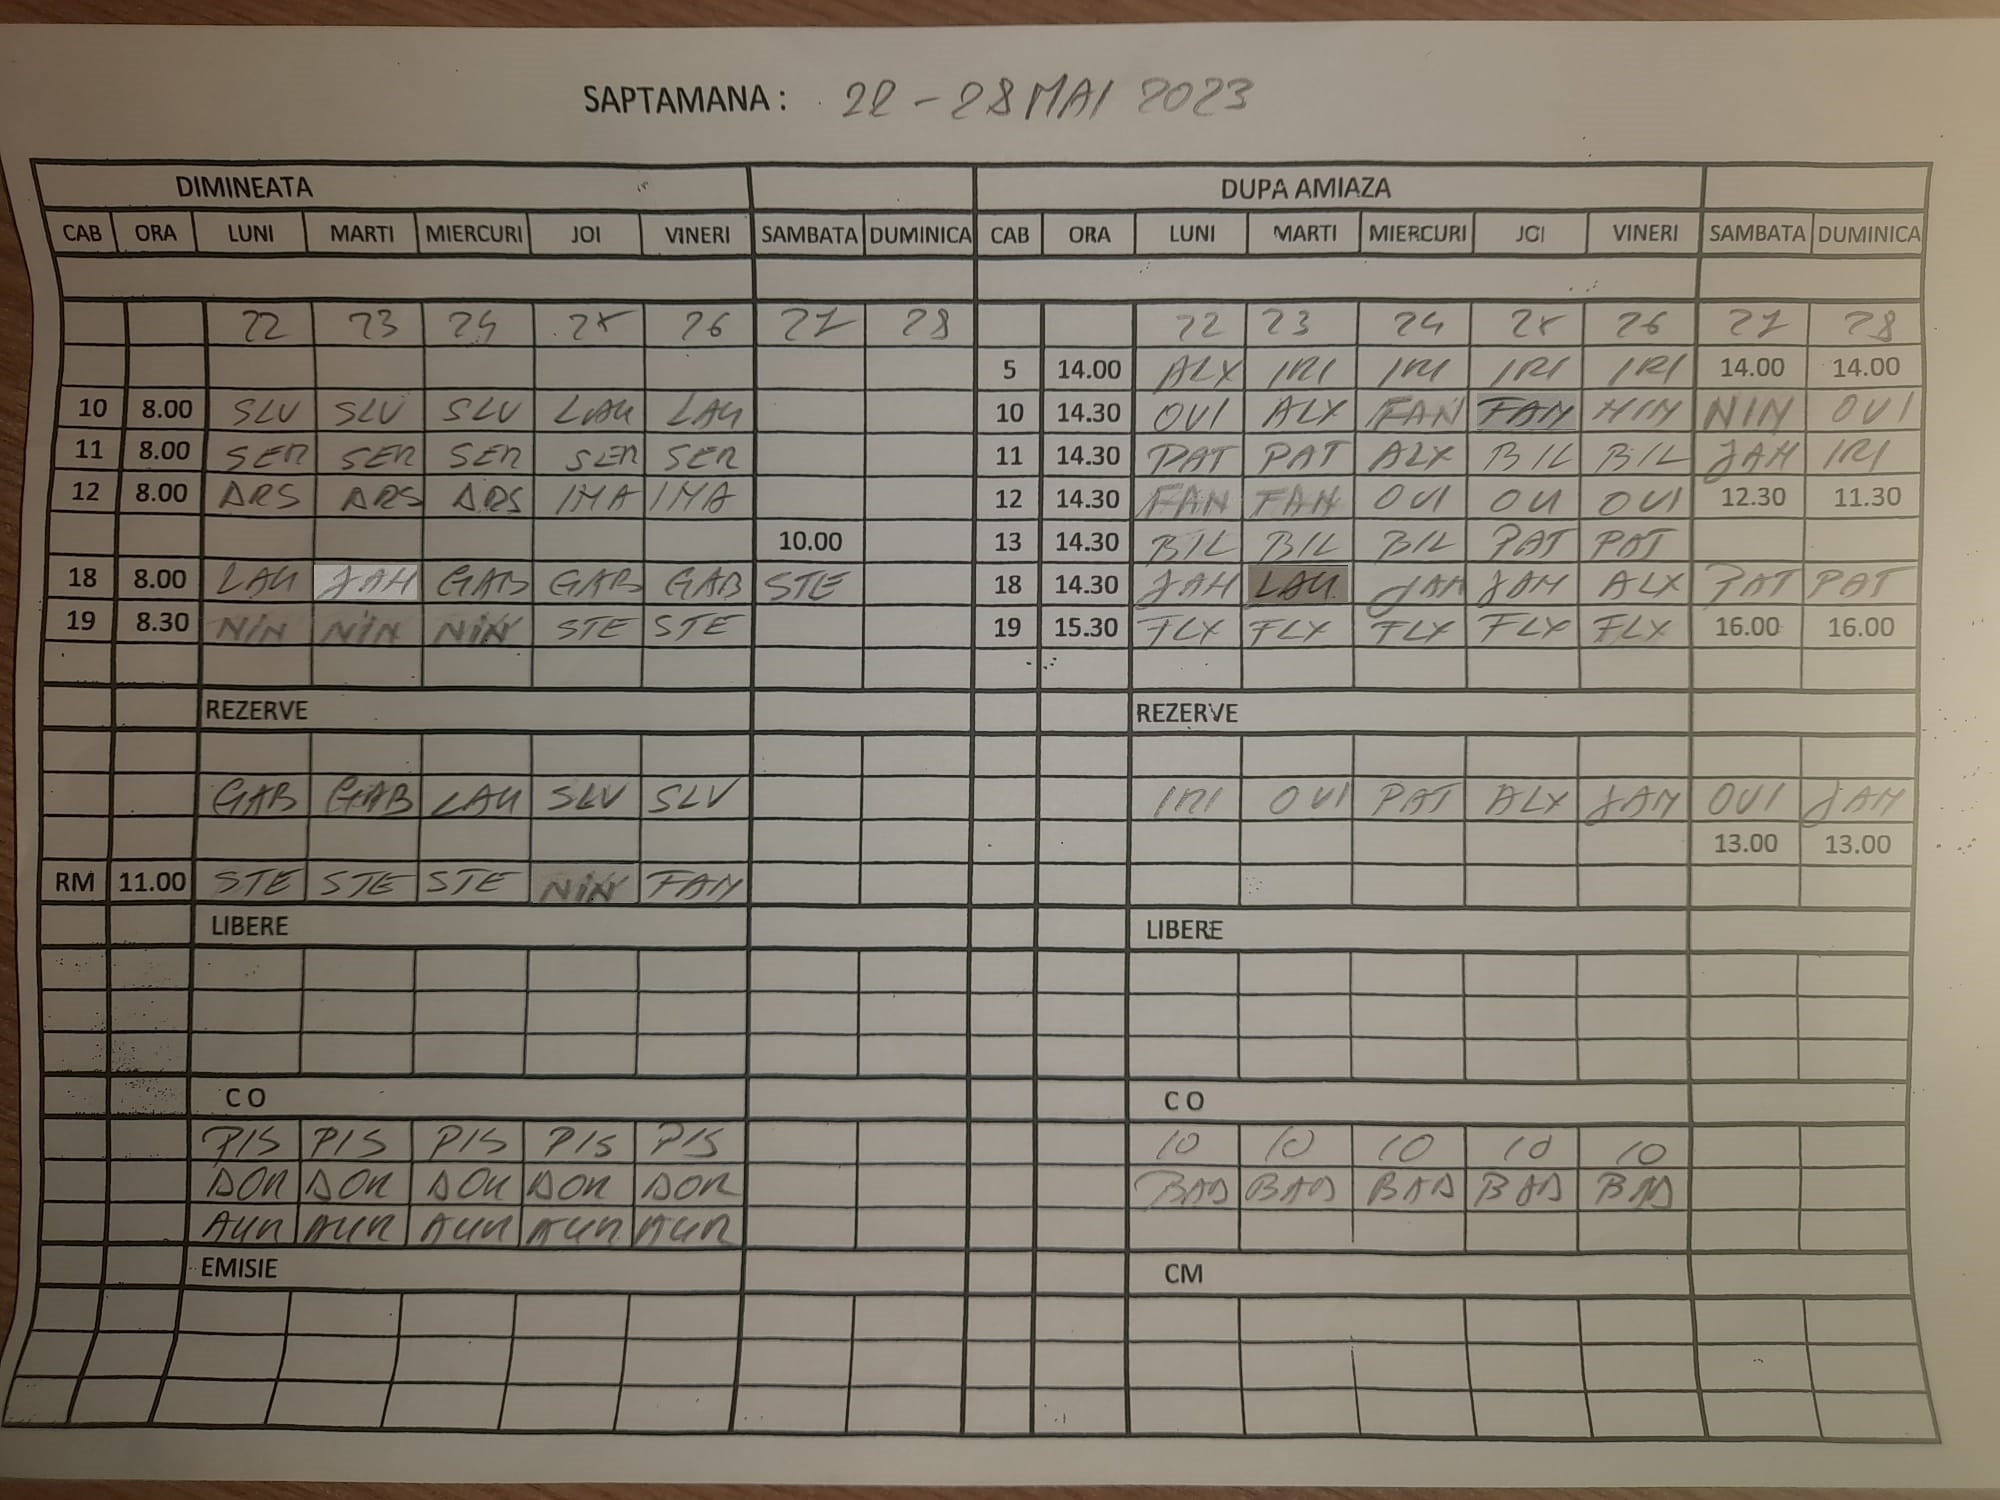 SAPTAMANA : 22 - 28 MAI 2023
DIMINEATA DUPA AMIAZA
CAB ORA LUNI MARTI MIERCURI JOI VINERI SAMBATA DUMINICA CAB ORA LUNI MARTI MIERCURI JOI VINERI SAMBATA DUMINICA
22 23 24 25 26 27 28 22 23 24 25 26 27 28
5 14.00 ALX IRI IRI IRI IRI 14.00 14.00
10 8.00 SLV SLV SLV LAU LAU 10 14.30 OVI ALX FAN FAN NIN NIN OVI
11 8.00 SER SER SER SER SER 11 14.30 PAT PAT ALX BIL BIL JAH IRI
12 8.00 DRS DRS DRS IMA IMA 12 14.30 FAN FAN OVI OVI OVI 12.30 11.30
10.00 13 14.30 BIL BIL BIL PAT PAT
18 8.00 LAU JAH GAB GAB GAB STE 18 14.30 JAH LAU JAH JAH ALX PAT PAT
19 8.30 NIN NIN NIN STE STE 19 15.30 FLX FLX FLX FLX FLX 16.00 16.00
REZERVE REZERVE
GAB GAB LAU SLV SLV IRI OVI PAT ALX JAH OVI JAH
13.00 13.00
RM 11.00 STE STE STE NIN FAN
LIBERE LIBERE
C O C O
PIS PIS PIS PIS PIS 10 10 10 10 10
DOR DOR DOR DOR DOR BAD BAD BAD BAD BAD
AUR AUR AUR AUR AUR
EMISIE CM